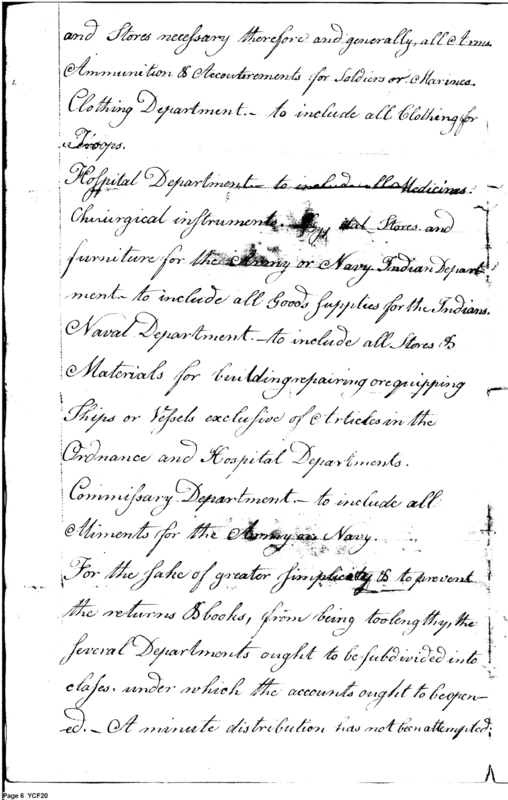 and Stores necessary therefore and generally, all Arms
Ammunition & Accoutirements for Soldiers or Marines.
Clothing Department. - to include all Clothing for
Troops.
Hospital Department - to include all Medicines.
Chirurgical instruments. Stores. and
furniture for the Army or Navy. Indian Depart
ment - to include all Goods Supplies for the Indians.
Naval Department. - to include all Stores &
Materials for building repairing or equipping
Ships or Vessels exclusive of Articles in the
Ordnance and Hospital Departments.
Commissary Department. - to include all
Aliments for the Army or Navy.
For the sake of greater simplicity & to prevent
the returns & books, from being too lengthy, the
several Departments ought to be subdivided into
classes. under which the accounts ought to be open-
ed. - A minute distribution has not been attempted;
Page 6 YCF20